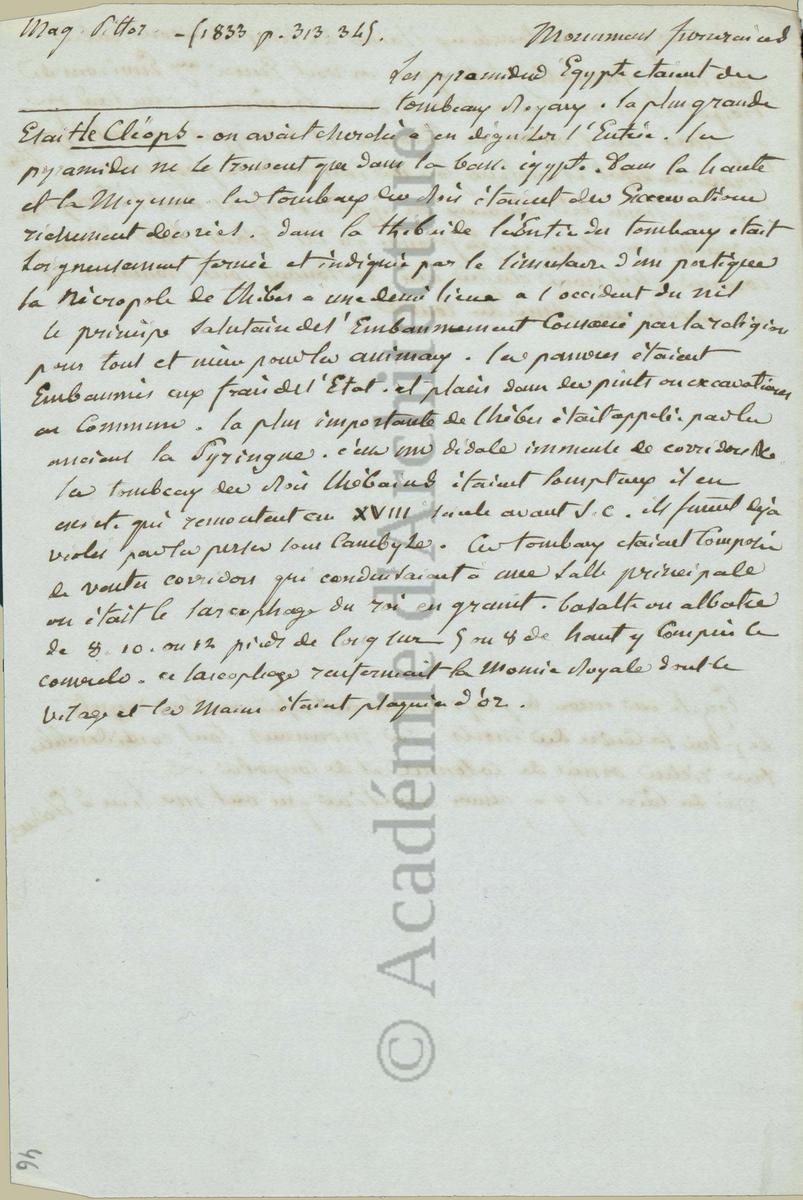 Mag. Pittor. - (1833 p. 313. 34). Monumens funeraires
Les pyramides d'Egypte etaient des
tombeaux Royaux. la plus grande
Etait de Cléops - on avait cherché a en déguiser l'Entrée. les
pyramides ne se trouvent que dans la basse egypte. Dans la haute
et la Moyenne les tombeaux des Rois étaient des Excavations
richement décorées. dans la thébaide l'Entrée des tombeaux etait
soigneusement fermée et indiquée par le simulacre d'un portique
la Nécropole de thèbes a une demi lieue a l'occident du nil
le principe salutaire de l'Embaumement Consacré par la religion
pour tout et même pour les animaux. les pauvres étaient
Embaumés aux frais de l'Etat. et placés dans des puits ou excavations
en Commun. la plus importante de thèbes était appelée par les
anciens la Syringue. c'est un dédale immense de corridors &c
les tombeaux des Rois thébains étaient somptueux il en
existe qui remontent au XVIII siecle avant J. C. ils furent déja
violés par les perses sous Cambyse. Ces tombeaux etaient Composés
de vastes corridors qui conduisaient a une salle principale
ou était le sarcophage du roi en granit. basalte ou albatre
de 8. 10. ou 12 pieds de long sur 5 ou 8 de haut y Compris le
couvercle. ce sarcophage renfermait la Momie Royale dont le
visage et les Mains étaient plaqués d'or.
46
© Académie d'Architecture